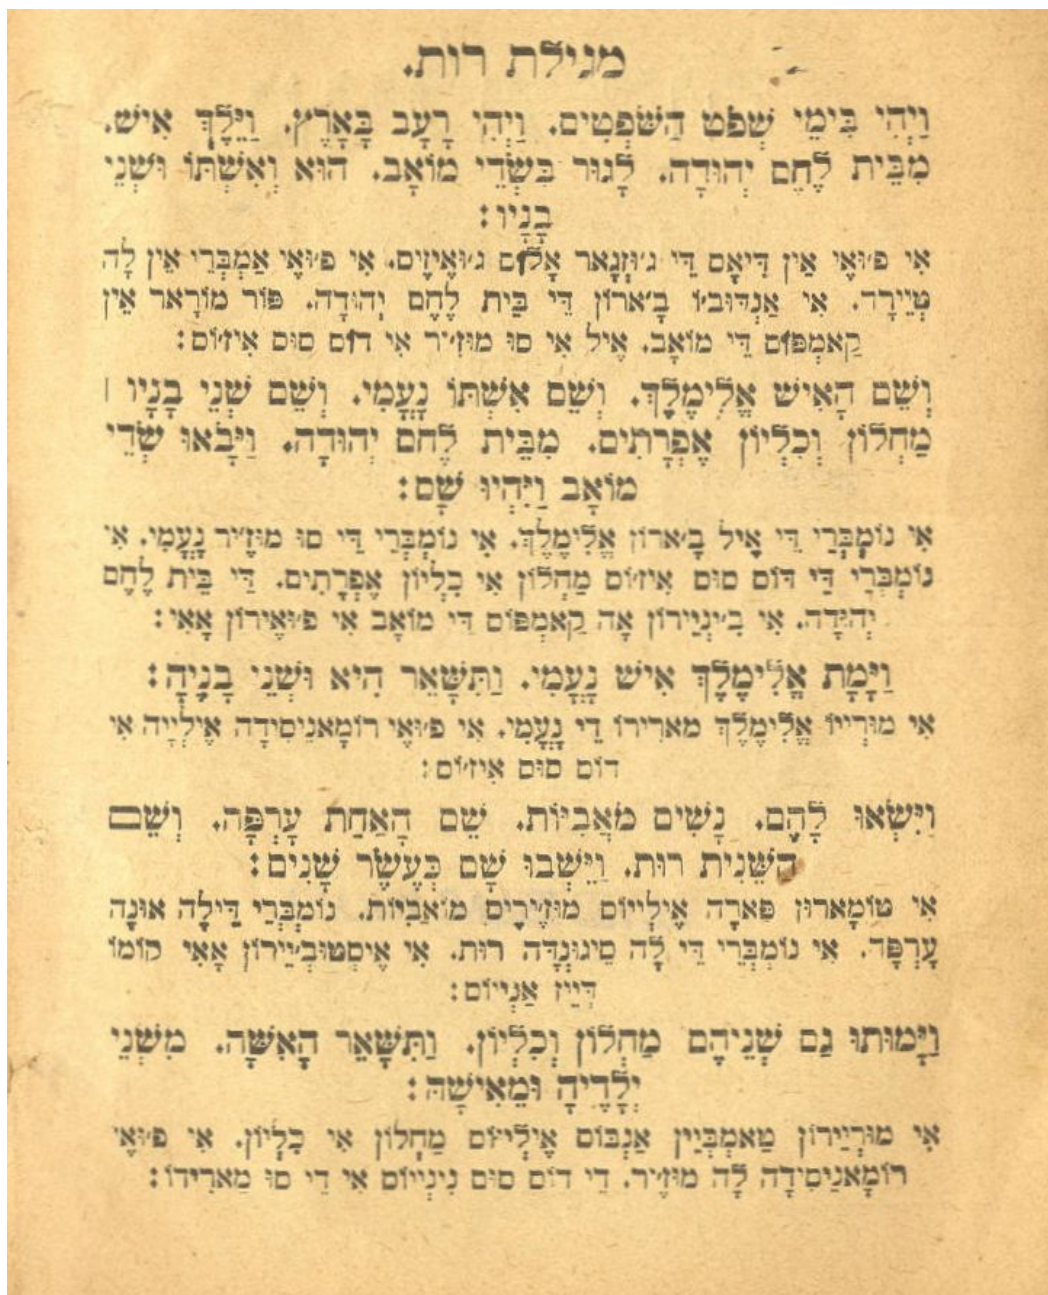 מגילת רות.
וַיְהִי בִּימֵי שְׁפֹט הַשֹּׁפְטִים. וַיְהִי רָעָב בָּאָרֶץ. וַיֵּלֶךְ אִישׁ.
מִבֵּית לֶחֶם יְהוּדָה. לָגוּר בִּשְׂדֵי מוֹאָב. הוּא וְאִשְׁתּוֹ וּשְׁנֵי
בָנָיו:
אִי פ׳וּאֵי אֵין דִּיאָס דֵּי ג׳וּזְגָאר אָלוֹס ג׳וּאֵיזֵים. אִי פ׳וּאֵי אַמְבְּרֵי אֵין לָה
טְיֵירָה. אִי אַנְדּוּב׳וֹ בָ׳ארוֹן דֵּי בֵּית לֶחֶם יְהוּדָה. פּוֹר מוֹרָאר אֵין
קַאמְפּוֹס דֵּי מוֹאָב. אֵיל אִי סוּ מוּזֵ׳יר אִי דוֹס סוּס אִיז׳וֹס:
וְשֵׁם הָאִישׁ אֱלִימֶלֶךְ. וְשֵׁם אִשְׁתּוֹ נָעֳמִי. וְשֵׁם שְׁנֵי בָנָיו ׀
מַחְלוֹן וְכִלְיוֹן אֶפְרָתִים. מִבֵּית לֶחֶם יְהוּדָה. וַיָּבֹאוּ שְׂדֵי
מוֹאָב וַיִּהְיוּ שָׁם:
אִי נוֹמְבְּרֵי דֵּי אֵיל בָ׳ארוֹן אֱלִימֶלֶךְ. אִי נוֹמְבְּרֵי דֵּי סוּ מוּזֵ׳יר נָעֳמִי. אִי
נוֹמְבְּרֵי דֵּי דוֹס סוּס אִיז׳וֹס מַחְלוֹן אִי כִלְיוֹן אֶפְרָתִים. דֵּי בֵּית לֶחֶם
יְהוּדָה. אִי בִ׳ינְיֵירוֹן אָה קַאמְפּוֹס דֵּי מוֹאָב אִי פ׳וּאֵירוֹן אָאִי:
וַיָּמָת אֱלִימֶלֶךְ אִישׁ נָעֳמִי. וַתִּשָּׁאֵר הִיא וּשְׁנֵי בָנֶיהָ:
אִי מוּרְייוֹ אֱלִימֶלֶךְ מארידו דֵּי נָעֳמִי. אִי פ׳וּאֵי רוֹמָאנֵיסִידָה אֵילְיָיה אִי
דוֹס סוּס אִיז׳וֹס:
וַיִּשְׂאוּ לָהֶם. נָשִׁים מֹאֲבִיּוֹת. שֵׁם הָאַחַת עָרְפָּה. וְשֵׁם
הַשֵּׁנִית רוּת. וַיֵּשְׁבוּ שָׁם כְּעֶשֶׂר שָׁנִים:
אִי טוֹמָארוֹן פַּארָה אֵילְייוֹס מוּזֵ׳ירֵיס מוֹאַבִיּוֹת. נוֹמְבְּרֵי דֵּילָה אוּנָה
עָרְפָּה. אִי נוֹמְבְּרֵי דֵּי לָה סֵיגוּנְדָּה רוּת. אִי אֵיסְטוּבְ׳יֵירוֹן אָאִי קוֹמוֹ
דְּיֵיז אַנְייוֹס:
וַיָּמוּתוּ גַם שְׁנֵיהֶם מַחְלוֹן וְכִלְיוֹן. וַתִּשָּׁאֵר הָאִשָּׁה. מִשְּׁנֵי
יְלָדֶיהָ וּמֵאִישָׁהּ:
אִי מוּרְיֵירוֹן טַאמְבְּיֵין אַנְבּוֹס אֵילְייוֹס מַחְלוֹן אִי כִלְיוֹן. אִי פ׳וּאֵי
רוֹמָאנֵיסִידָה לָה מוּזֵ׳יר. דֵּי דוֹס סוּס נִינְייוֹס אִי דֵי סוּ מַארִידוֹ: